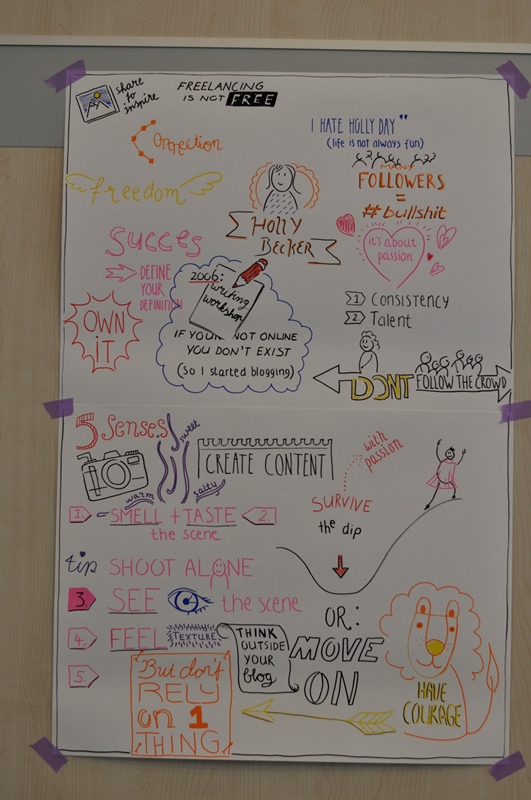 share
to
inspire
FREELANCING
IS NOT FREE
Connection
I HATE HOLLY DAY"
(life is not always fun)
freedom
MANY
FOLLOWERS
=
#bullshit
HOLLY
BECKER
Succes
DEFINE
YOUR
DEFINITION
it's about
passion
2006:
writing
workshop
IF YOUR NOT ONLINE
YOU DON'T EXIST
(so I started blogging)
OWN
iT
1 Consistency
2 Talent
DONT FOLLOW THE CROWD
5 Senses
sweet
salty
warm
CREATE CONTENT
with
passion
1. SMELL + TASTE 2.
the scene
SURVIVE
the dip
tip SHOOT ALONE
3. SEE the scene
4. FEEL TEXTURE
5.
THINK
OUTSIDE
YOUR
blog
OR:
MOVE
ON
But don't
RELY
on 1
THING
HAVE
COURAGE